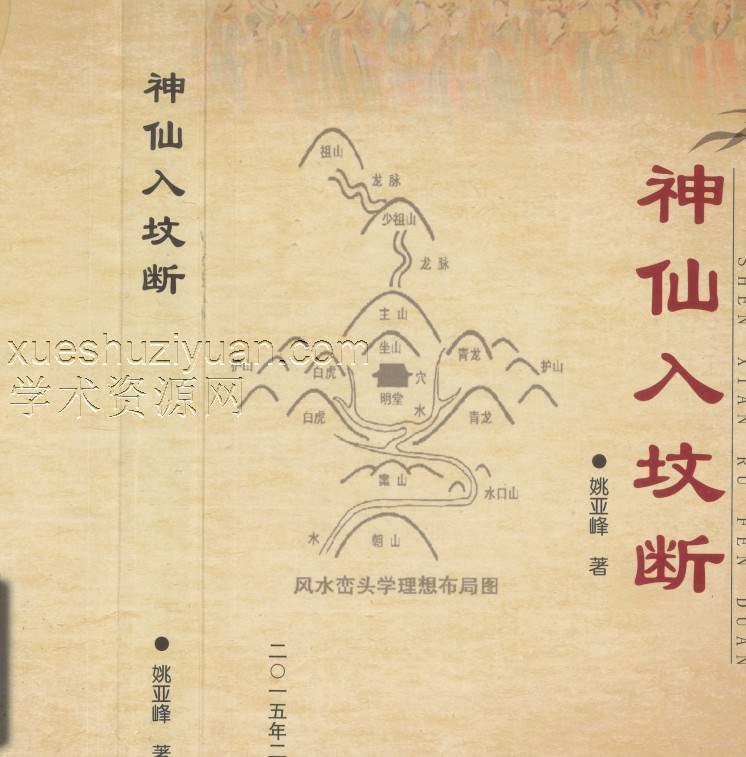 神仙入坟断
姚亚峰 著
二〇一五年二
xueshuziyuan.com
学术资源网
祖山
龙脉
少祖山
龙脉
主山
坐山
护山
白虎
青龙
护山
穴
明堂
水
白虎
青龙
案山
水口山
水
朝山
风水峦头学理想布局图
神仙入坟断
SHEN XIAN RU FEN DUAN
姚亚峰 著